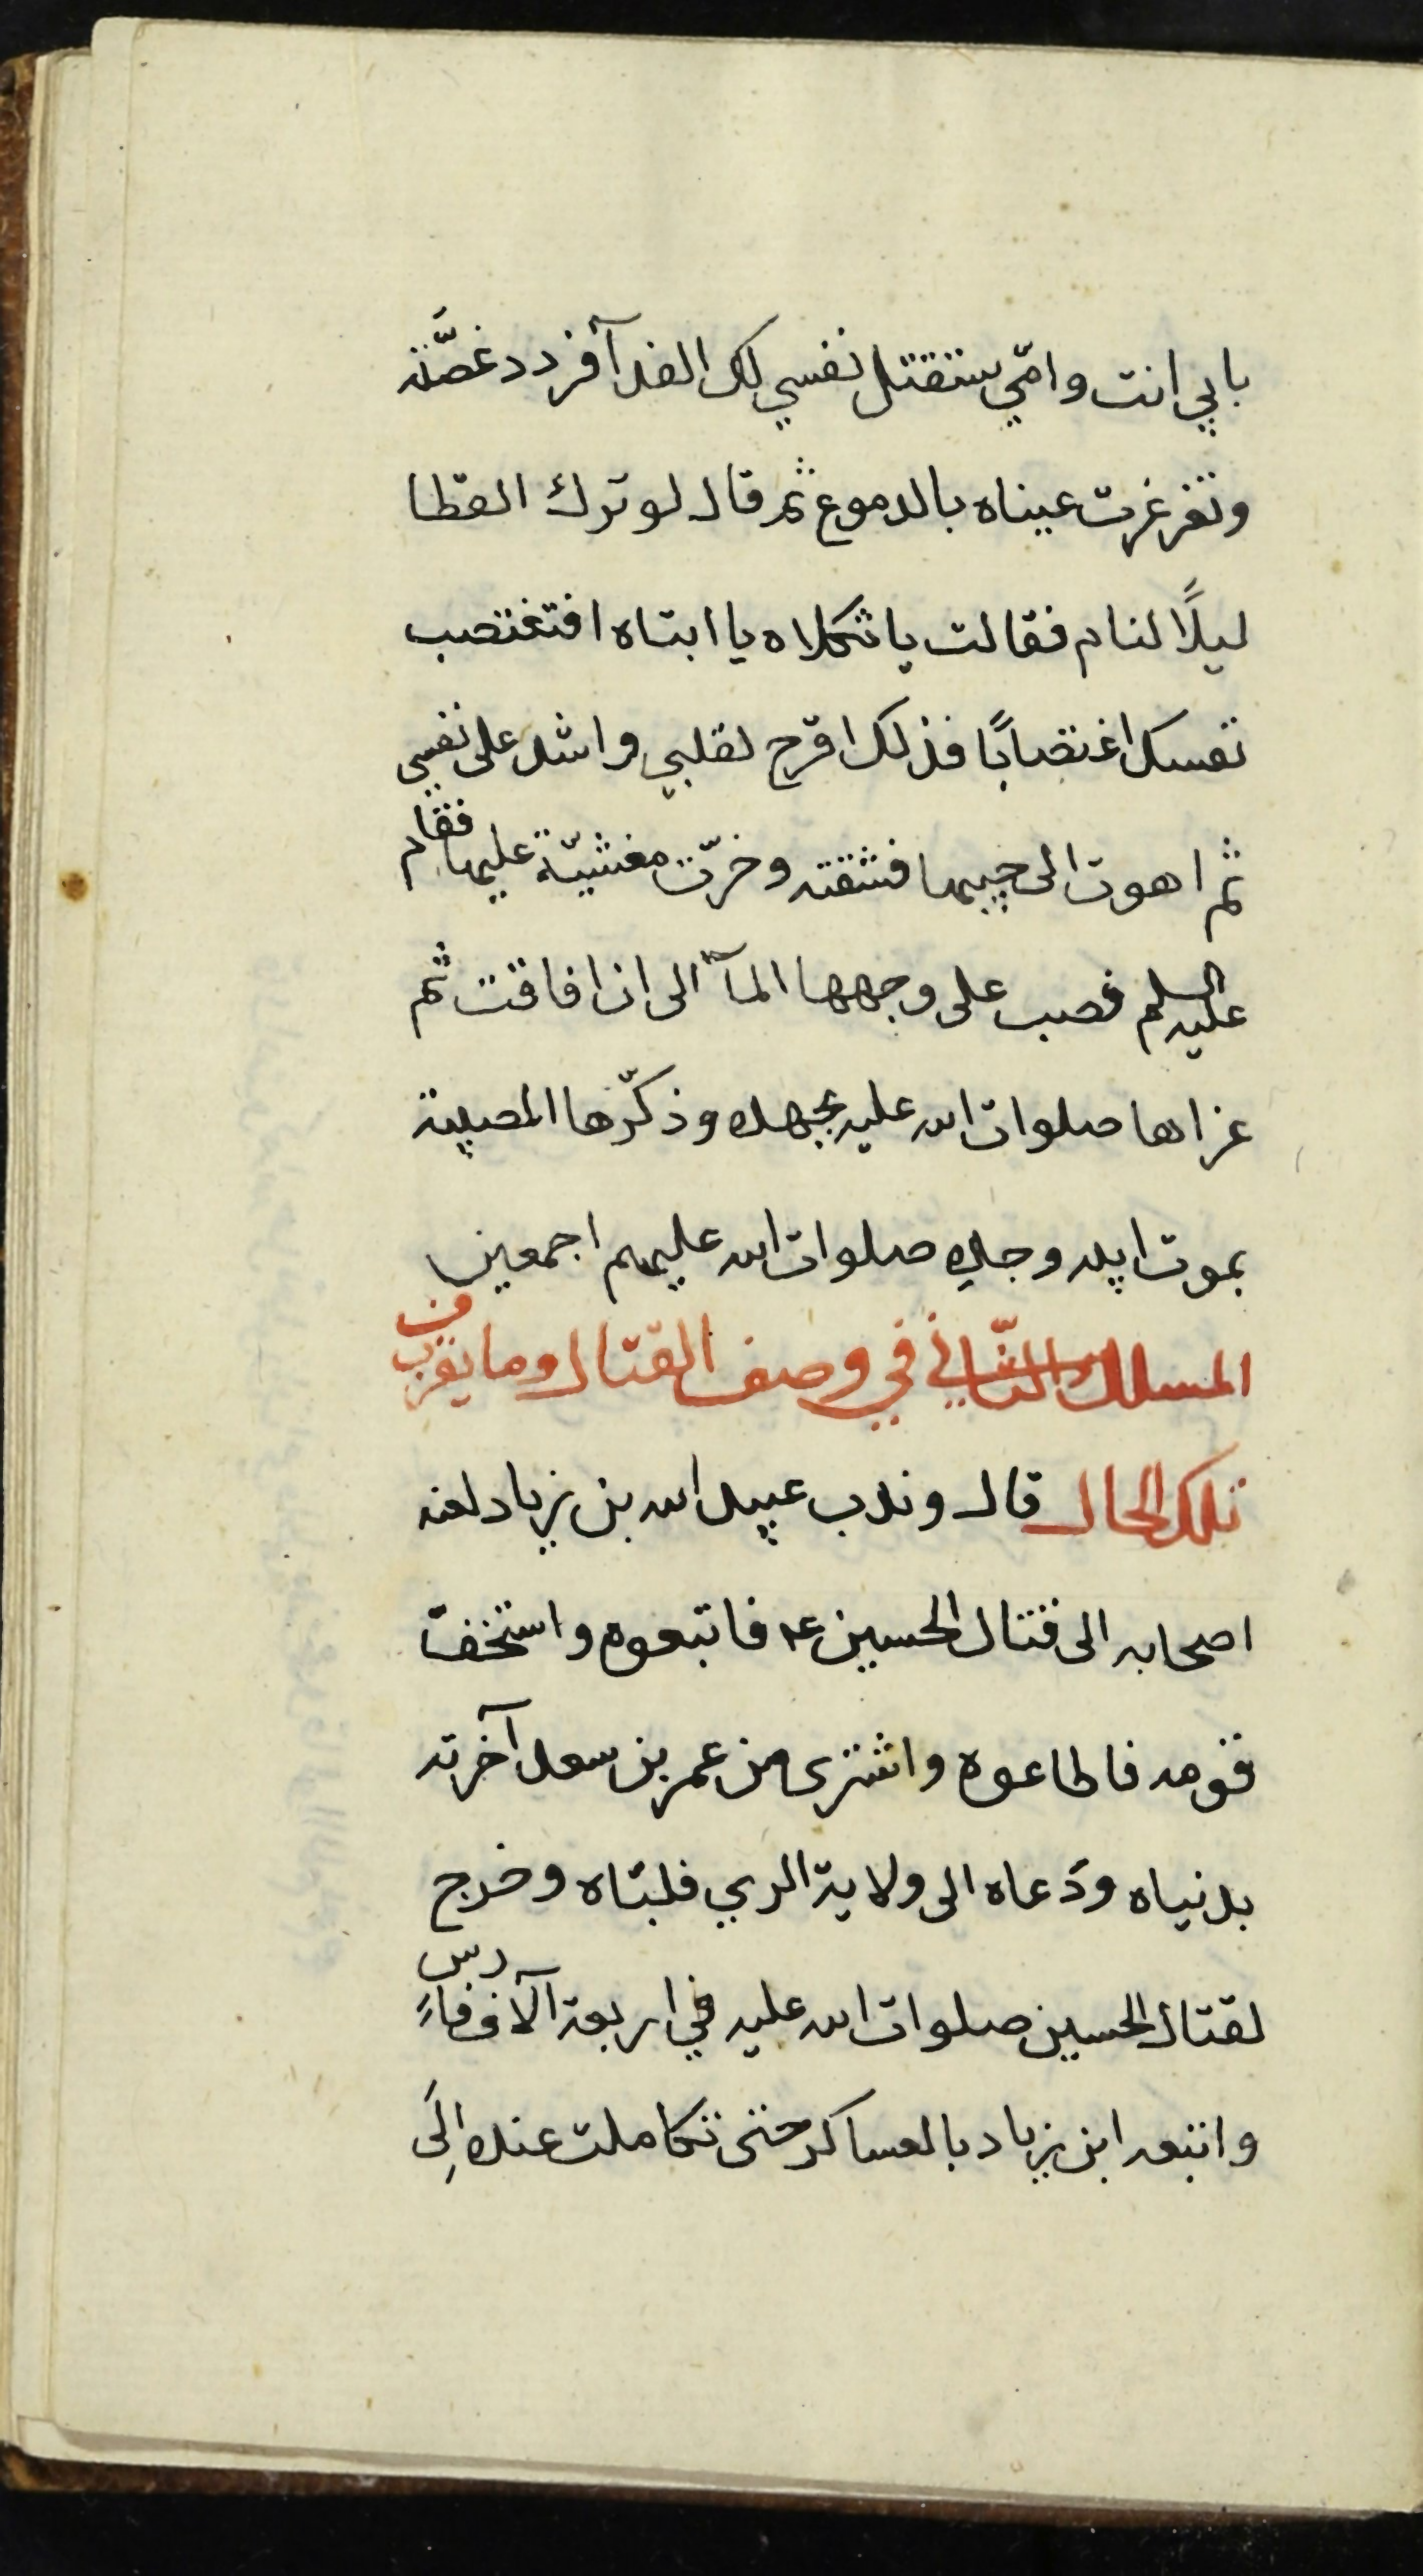 بابي انت وامّي ستقتل نفسي لك الفدآ فردد غصَّته
وتغرغرت عيناه بالدموع ثم قال لو ترك القطا
ليلًا لنام فقالت يا ثكلاه يا ابتاه افتغتصب
نفسك اغتصابًا فذلك اقرح لقلبي واشد على نفسي
ثم اهوت الى جيبها فشقته وخرّت مغشيّة عليها فقام
عليه السلم فصب على وجهها المآء الى ان افاقت ثم
عزاها صلوات الله عليه بجهده وذكّرها المصيبة
بموت ابيه وجده صلوات الله عليهم اجمعين
المسلك الثّاني في وصف القتال وما يقرب من
تلك الحال قال وندب عبيد الله بن زياد لعنه
اصحابه الى قتال الحسين عه فاتبعوه واستخفّ
قومه فاطاعوه واشترى من عمر بن سعد آخرته
بدنياه ودَعاه الى ولاية الري فلبّاه وخرج
لقتال الحسين صلوات الله عليه في اربعة آلاف فارس
واتبعه ابن زياد بالعساكر حتى تكاملت عنده الِىَ